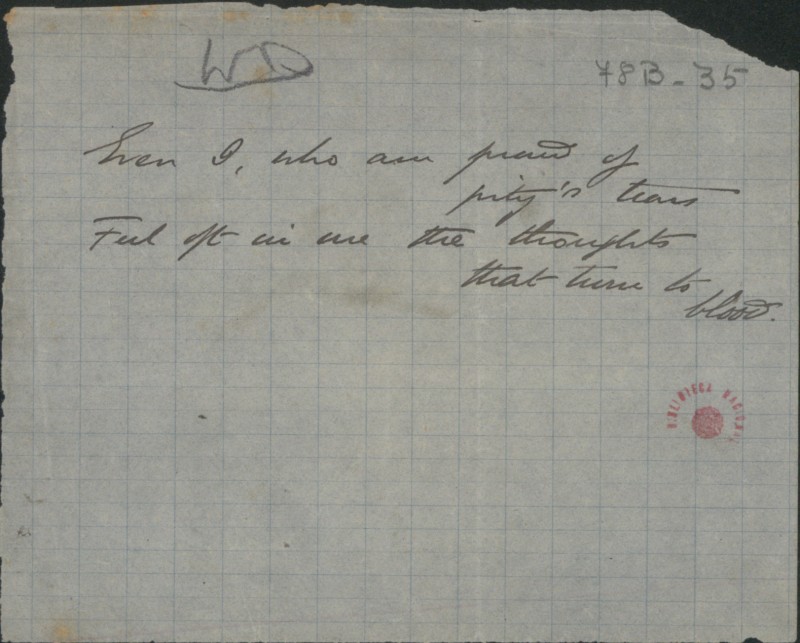 WD
78B-35
Even I, who am proud of
pity's tears
Feel oft in me the thoughts
that turn to
blood.
BIBLIOTECA NACIONAL